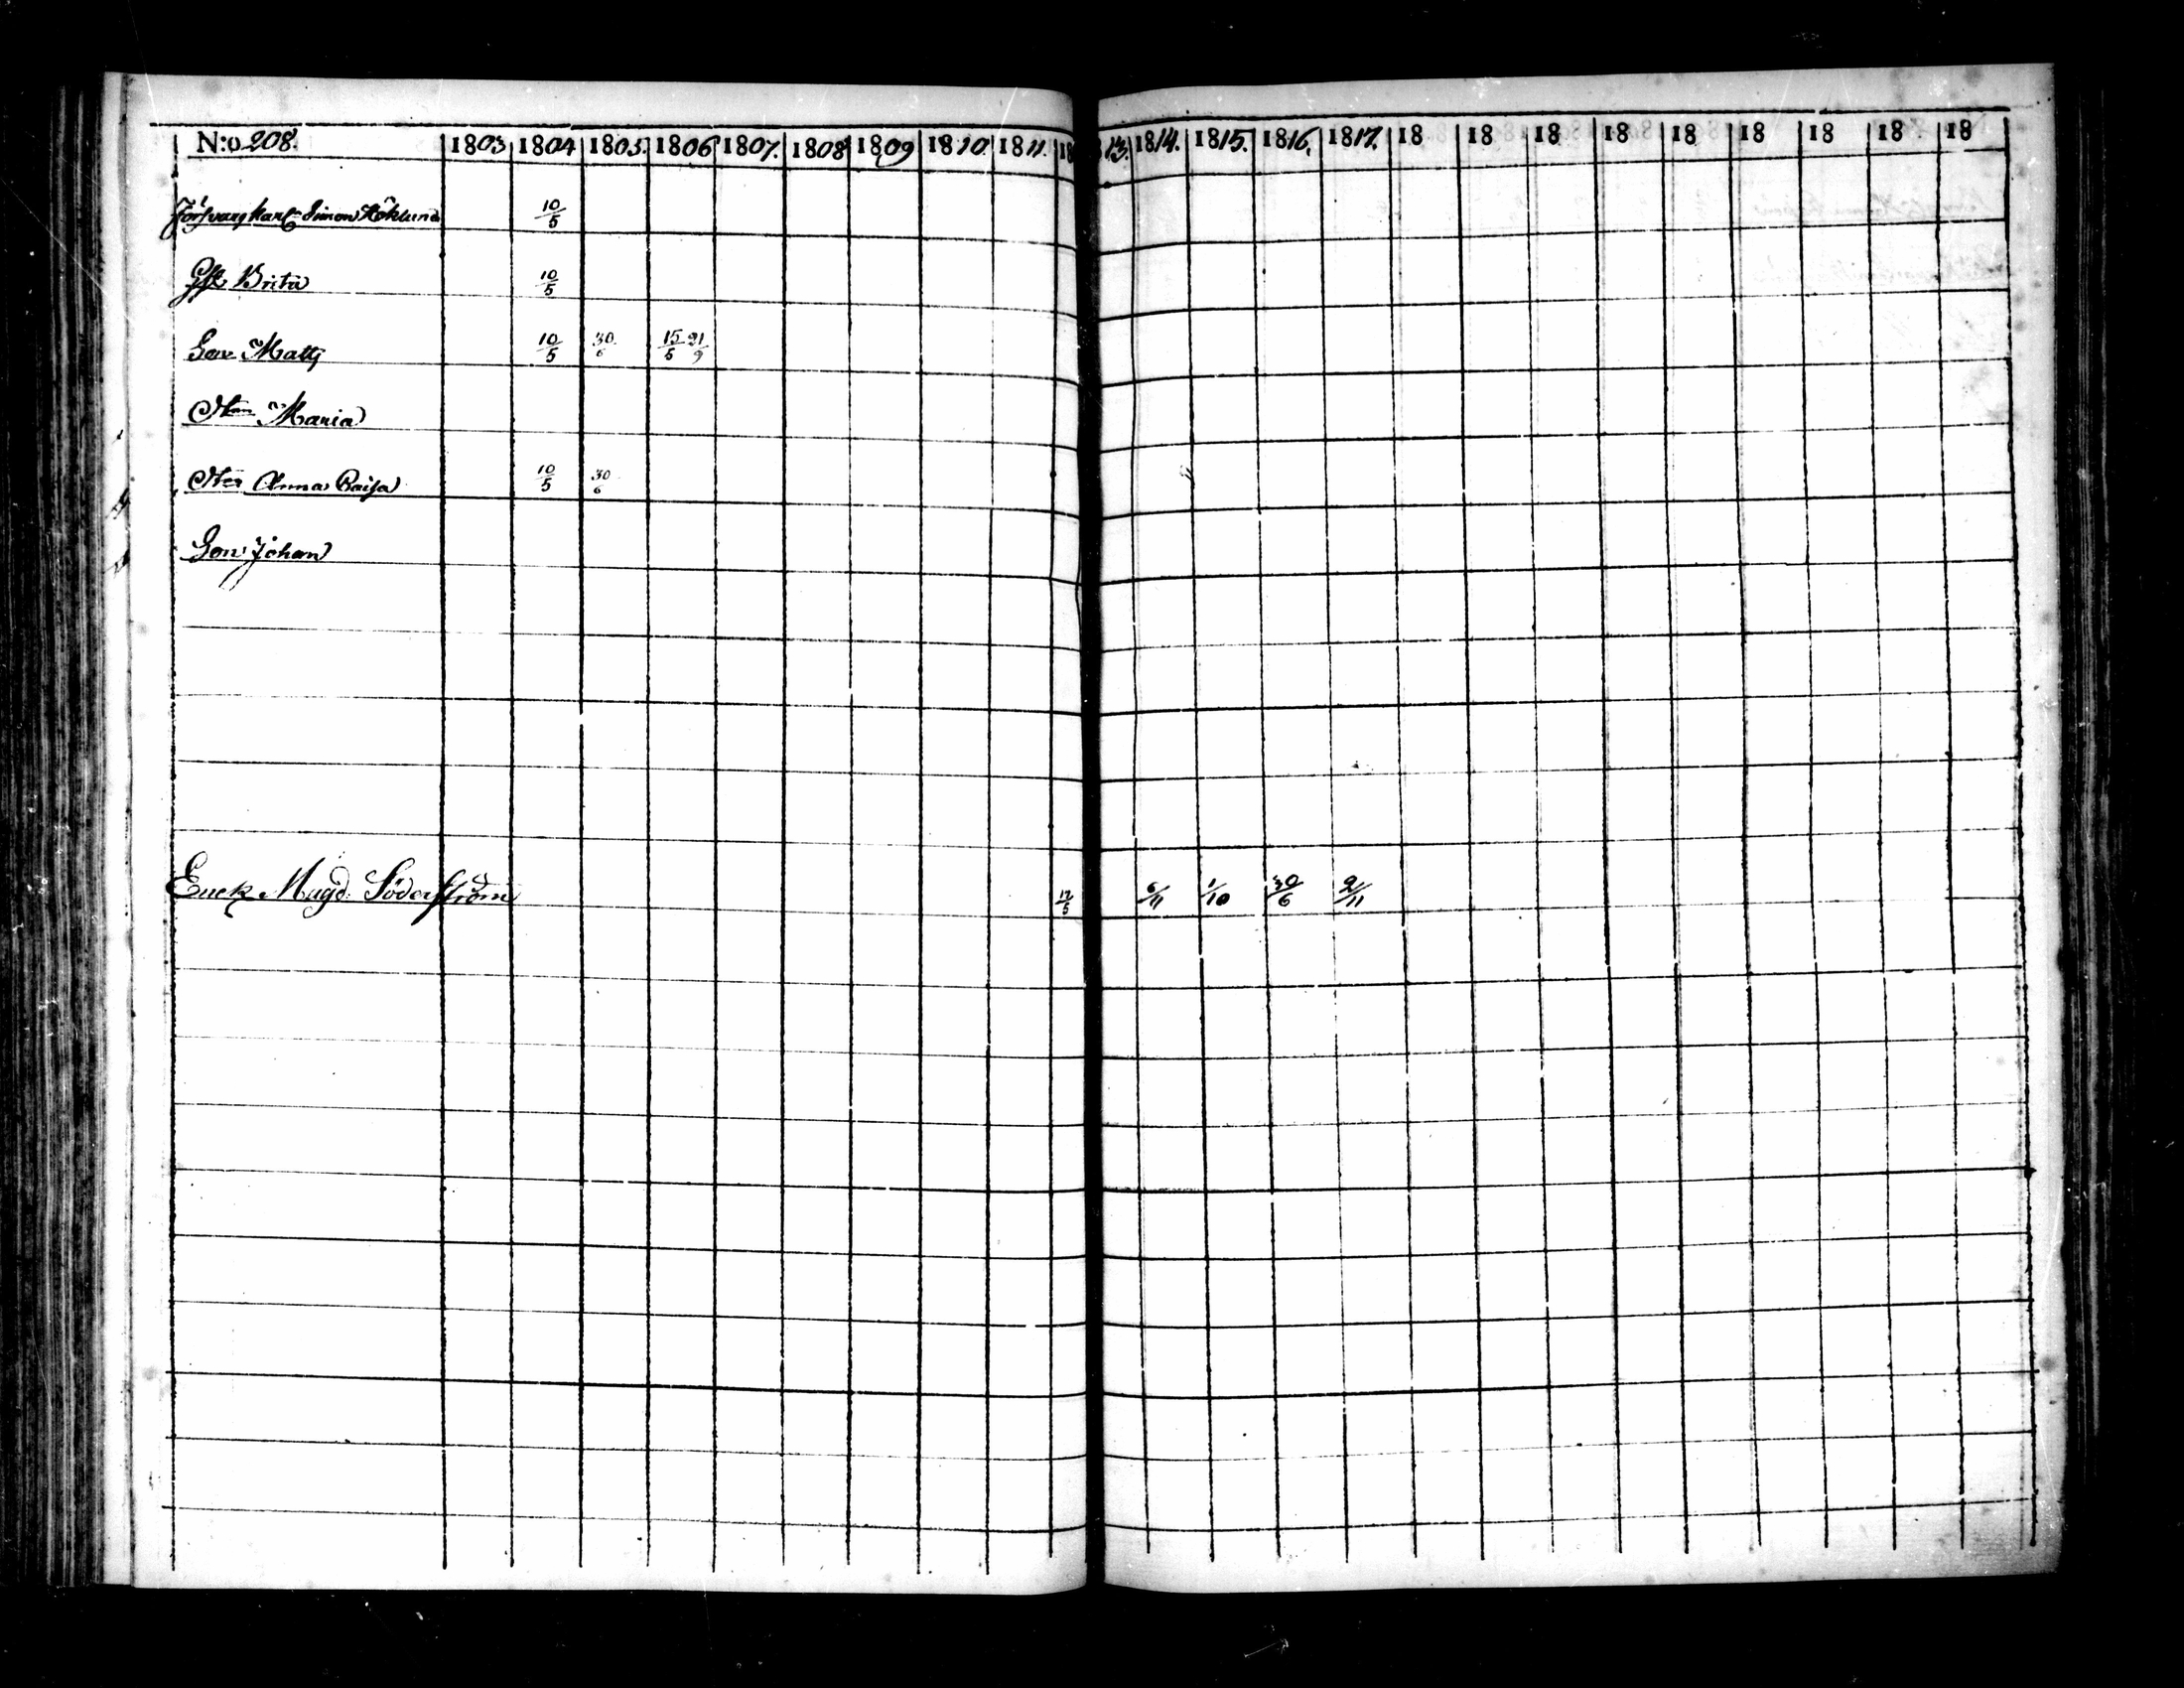 N:o 208. 1803 1804 1805. 1806 1807. 1808 1809 1810 1811. 18 13. 1814. 1815. 1816. 1817. 18 18 18 18 18 18 18 18 18
Försvarskarl Simon Höklund 10/5
Brita 10/5
Son Matts 10/5 30/6 15/5 21/9
Maria
Anna Caisa 10/5 30/6
Son Johan
Enck Magd: Söderström 12/5 6/11 1/10 30/6 2/11